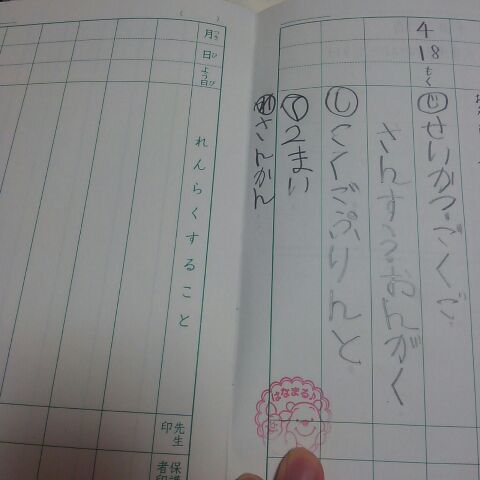 4
18
もく
じ せいかつ・こくご
さんすう・おんがく
し こくごぷりんと
て 2まい
れ さんかん
はなまる♪
月
日
よう日
れんらくすること
先生
印